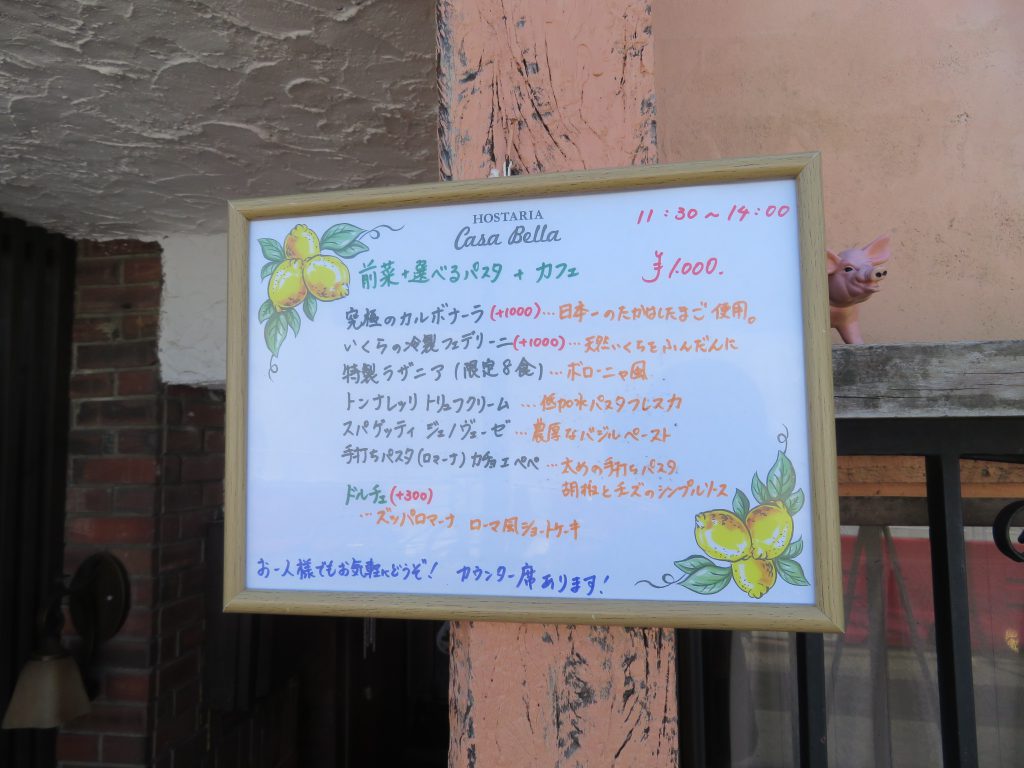 HOSTARIA
Casa Bella
11:30～14:00
前菜+選べるパスタ + カフェ
¥1.000.
究極のカルボナーラ(+1000)…日本一のたかはしたまご使用。
いくらの冷製フェデリーニ(+1000)…天然いくらをふんだんに
特製ラザニア(限定8食)…ボローニャ風
トンナレッリ トリュフクリーム …低加水パスタフレスカ
スパゲッティ ジェノヴェーゼ …濃厚なバジルペースト
手打ちパスタ(ロマーナ)カチョエペペ …太めの手打ちパスタ
胡椒とチーズのシンプルソース
ドルチェ(+300)
…ズッパロマーナ ローマ風ショートケーキ
お一人様でもお気軽にどうぞ! カウンター席あります!